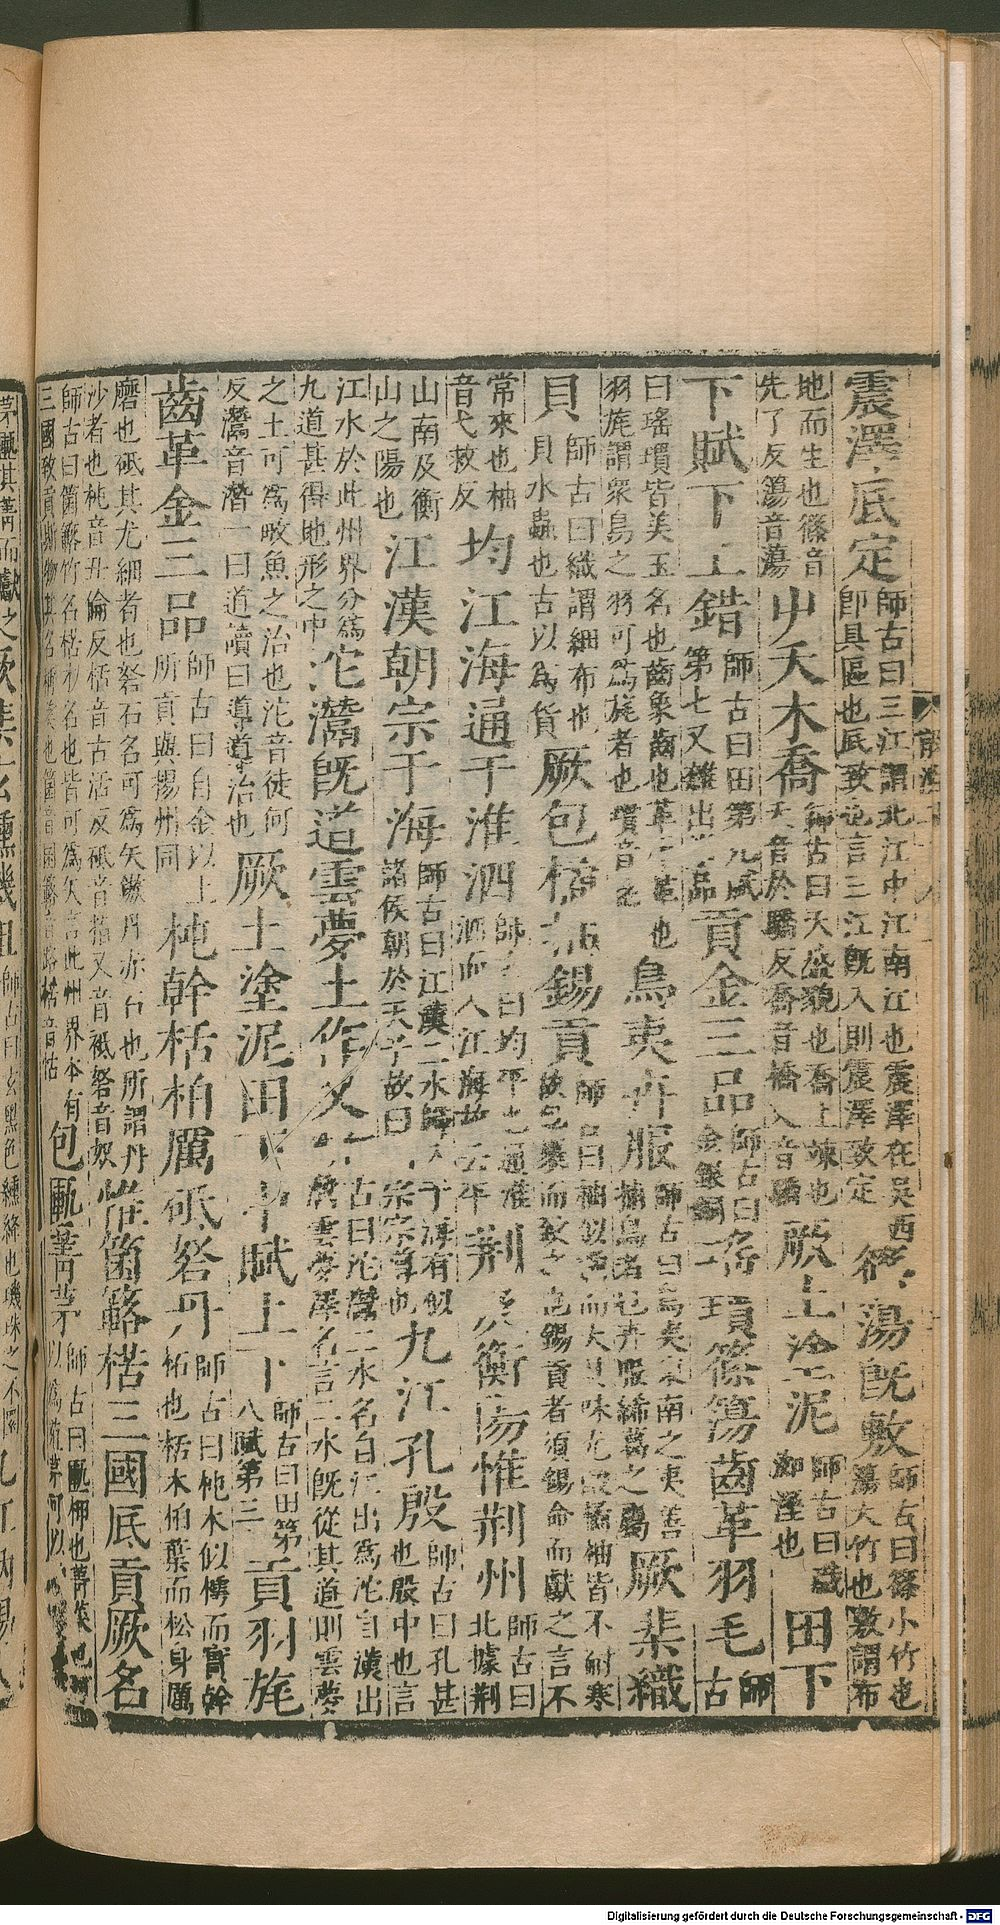 震澤底定師古曰三江謂北江中江南江也震澤在吳西即具區也底致也言三江既入則震澤致定 篠簜既敷師古曰篠小竹也簜大竹也敷謂布
地而生也篠音先了反簜音蕩 屮夭木喬師古曰夭盛貌也喬上竦也夭音於驕反喬音橋 厥土塗泥師古曰 田下
下賦下上錯師古曰田第九賦第七又雜出 品 貢金三品師古曰金銀銅 瑤瑻篠簜齒革羽毛師古
曰瑤瑻皆美玉名也齒象齒也革 也羽旄謂衆鳥之羽可爲旄者也瑻音 鳥夷卉服師古曰鳥夷東南之夷善捕鳥者也卉服絺葛之屬 厥棐織
貝師古曰織謂細布也貝水蟲也古以爲貨 厥包橘柚錫貢師古曰柚似 而大 味尤 橘柚皆不耐寒故包裹而致之也錫貢者須錫命而獻之言不
常來也柚音弋救反 均江海通于淮泗師古曰均平也通淮泗而入江海故云平 荆及衡陽惟荆州師古曰北據荆
山南及衡山之陽也 江漢朝宗于海師古曰江漢二水 于海有似諸侯朝於天子故曰朝宗宗尊也 九江孔殷師古曰孔甚也殷中也言
江水於此州界分爲九道甚得地形之中 沱灊既道雲夢土作乂師古曰沱灊二水名自江出爲沱自漢出爲灊雲夢澤名言二水既從其道則雲夢
之土可爲畎魚之治也沱音徒何反灊音潛一曰道讀曰導導治也 厥土塗泥田下中賦上下師古曰田第八賦第三 貢羽旄
齒革金三品師古曰自金以上所貢與揚州同 杶幹栝柏厲砥砮丹師古曰杶木似樗而實幹柘也栝木柏葉而松身厲
磨也砥其尤細者也砮石名可爲矢鏃丹赤石也所謂丹沙者也杶音丑倫反栝音古活反砥音指又音祗砮音奴 惟箘簵楛三國厎貢厥名
師古曰箘簵竹名楛木名也皆可爲矢言此州界本有三國致貢斯物其名稱美也箘音困簵音路楛音怙 包匭菁茅師古曰匭柙也菁
Digitalisierung gefördert durch die Deutsche Forschungsgemeinschaft - DFG